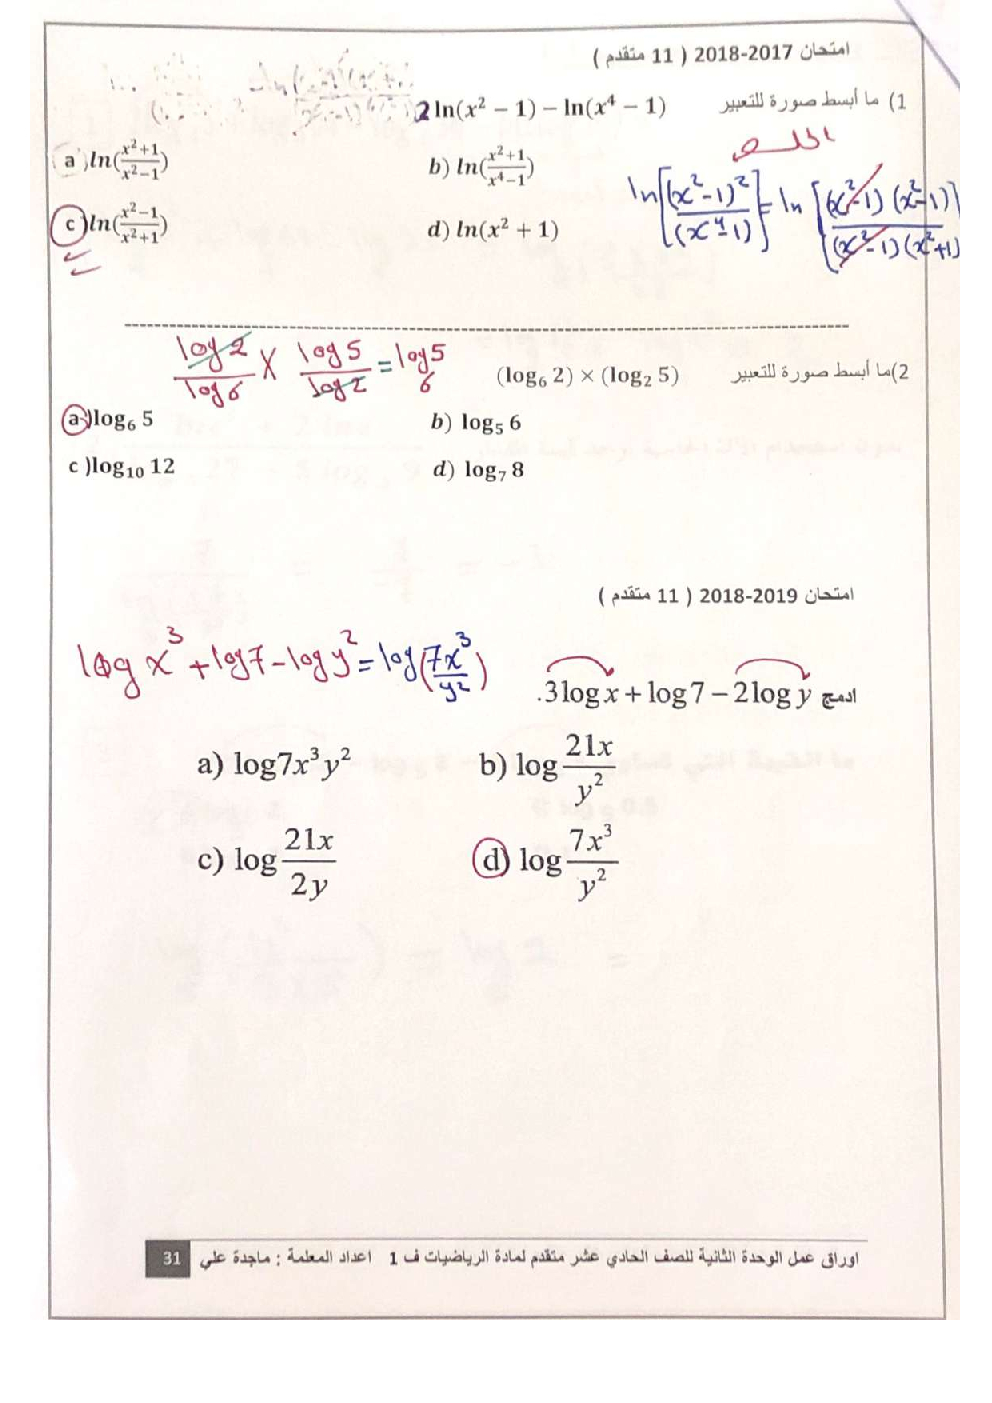 امتحان 2017-2018 ( 11 متقدم )
1) ما أبسط صورة للتعبير 2 ln(x² − 1) − ln(x⁴ − 1)
a )ln(x²+1/x²−1) b) ln(x²+1/x⁴−1)
c )ln(x²−1/x²+1) d) ln(x² + 1)
ln[(x²-1)²/(x⁴-1)] = ln[(x²-1)(x²-1)/(x²-1)(x²+1)]
2)ما أبسط صورة للتعبير (log₆ 2) × (log₂ 5)
log 2/log 6 × log 5/log 2 = log₆ 5
a )log₆ 5 b) log₅ 6
c )log₁₀ 12 d) log₇ 8
امتحان 2018-2019 ( 11 متقدم )
ادمج 3log x + log 7 − 2log y.
log x³ + log 7 - log y² = log(7x³/y²)
a) log7x³y² b) log 21x/y²
c) log 21x/2y d) log 7x³/y²
اوراق عمل الوحدة الثانية للصف الحادي عشر متقدم لمادة الرياضيات ف 1 اعداد المعلمة : ماجدة علي 31